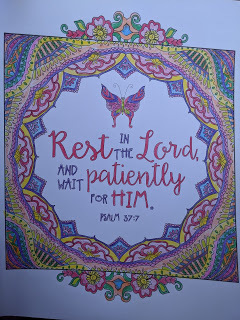 Rest IN THE Lord,
AND WAIT patiently
FOR HIM.
PSALM 37:7